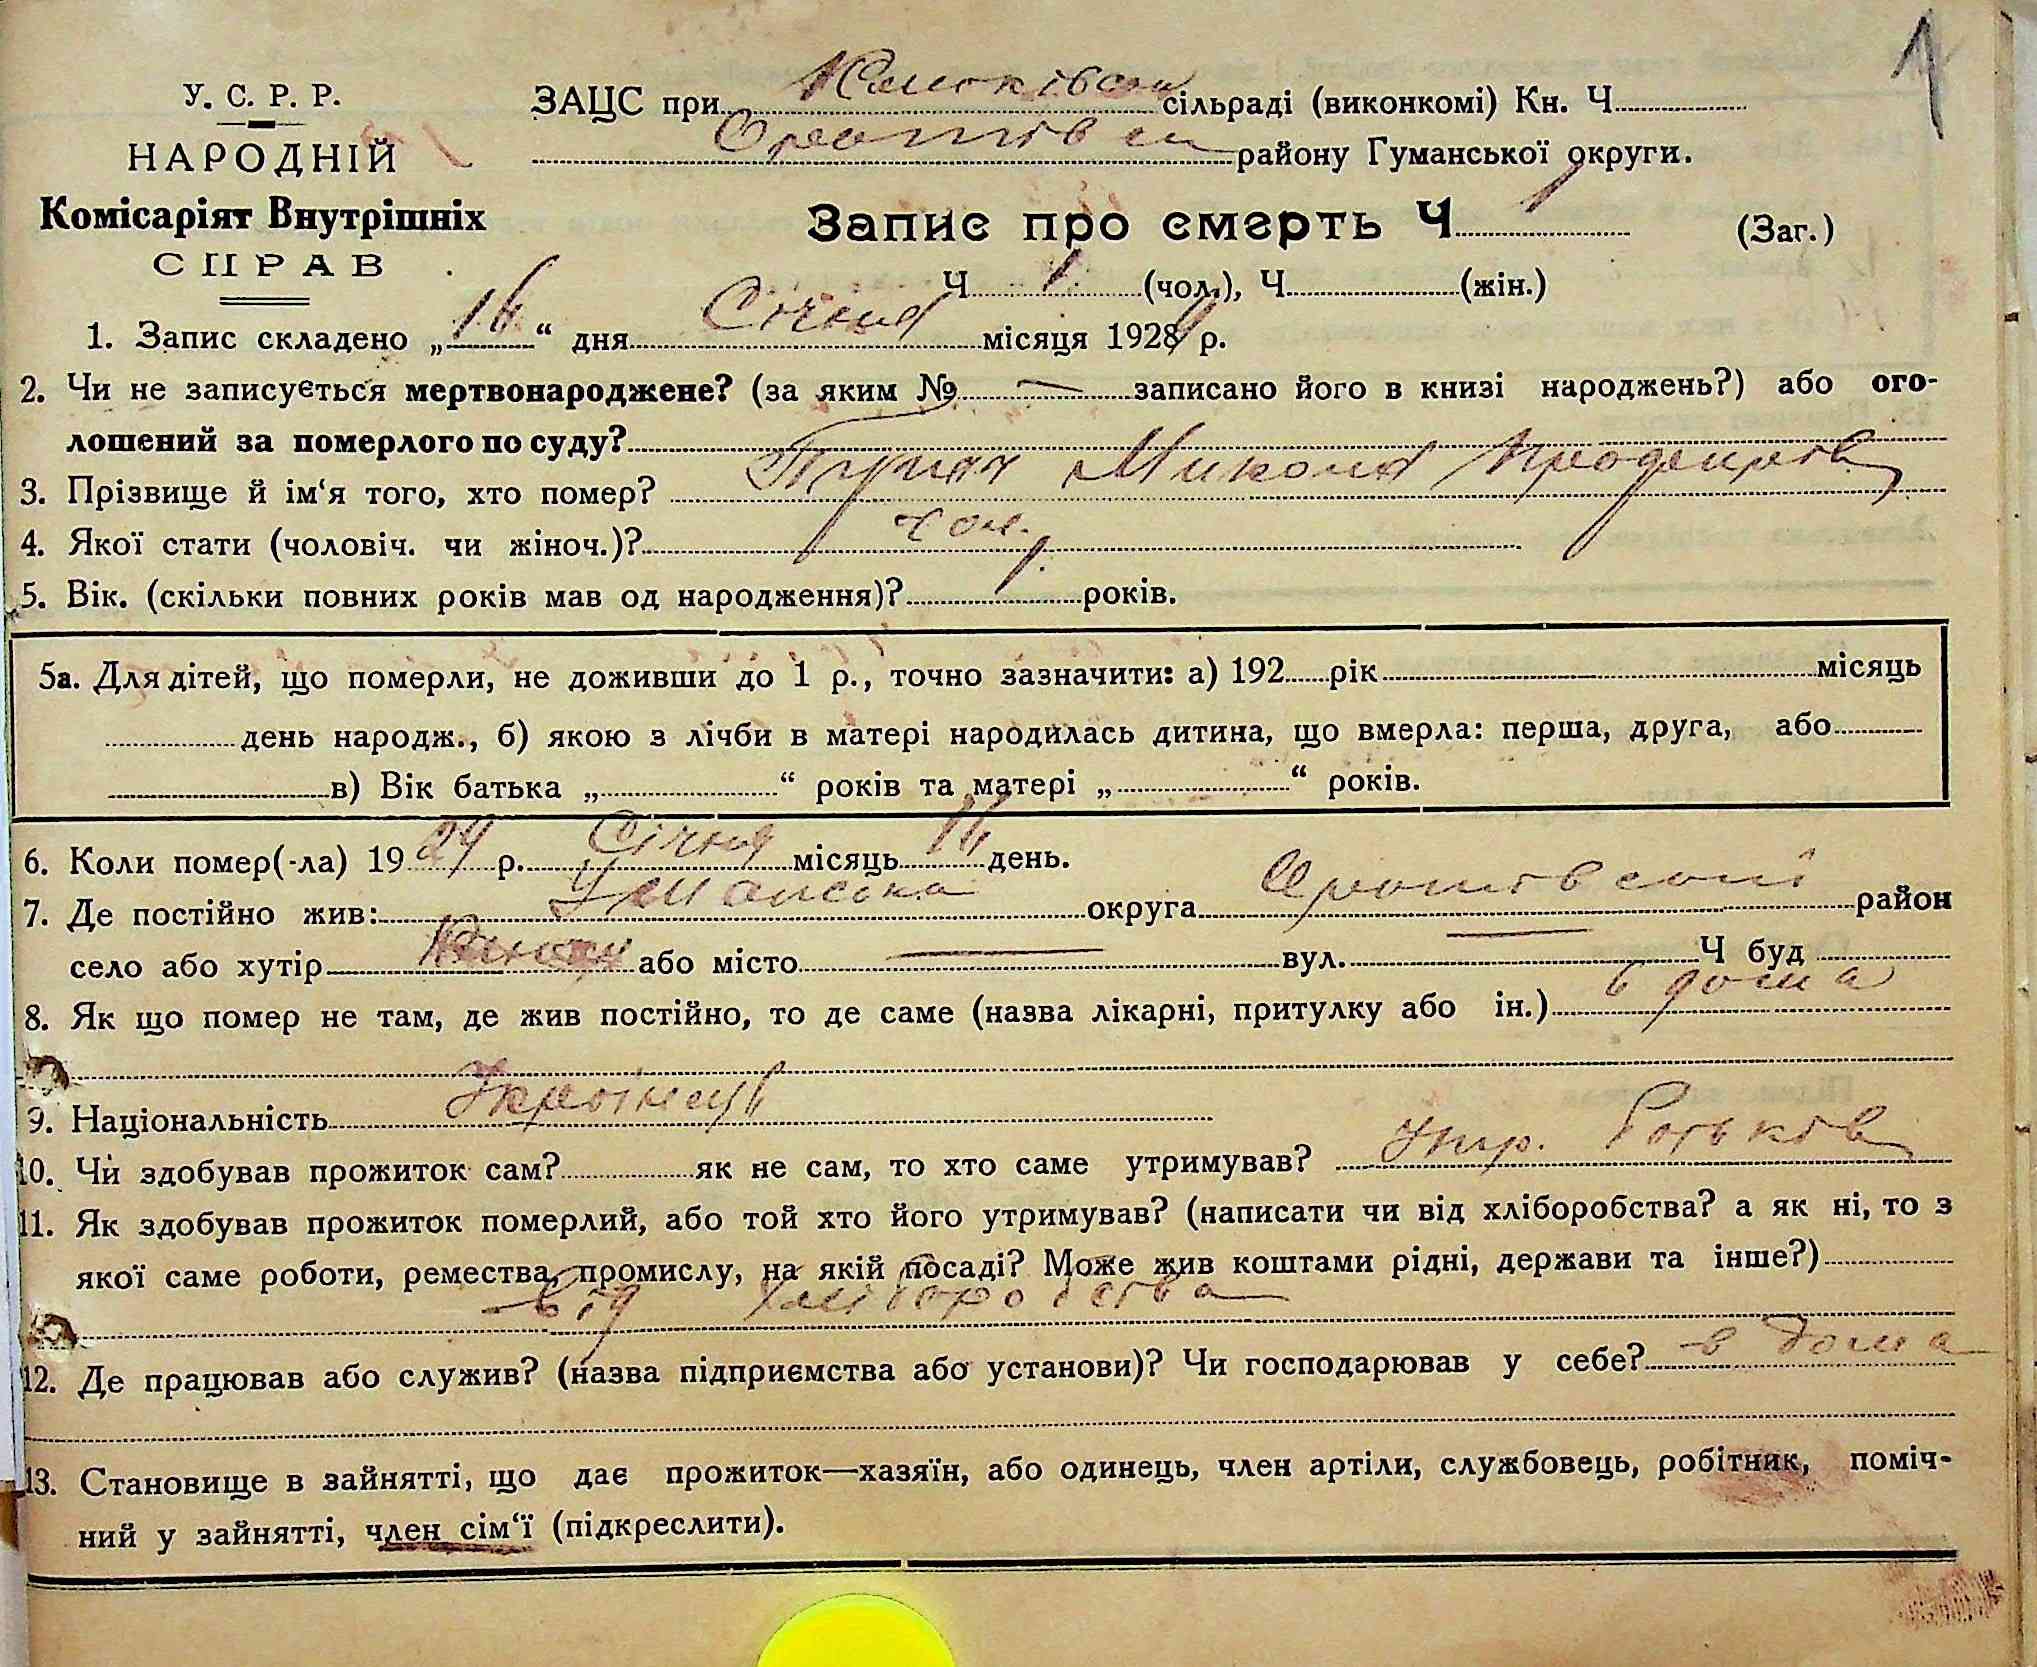 1
У. С. Р. Р.
НАРОДНІЙ
Комісаріят Внутрішніх
СПРАВ
ЗАЦС при сільраді (виконкомі) Кн. Ч
району Гуманської округи.
Запис про смерть Ч 1 (Заг.)
Ч 1 (чол.), Ч (жін.)
1. Запис складено „16“ дня Січня місяця 1929 р.
2. Чи не записується мертвонароджене? (за яким № — записано його в книзі народжень?) або ого-
лошений за померлого по суду?
3. Прізвище й ім‘я того, хто помер? Микола
4. Якої стати (чоловіч. чи жіноч.)? чол.
5. Вік. (скільки повних років мав од народження)? 1 років.
5а. Для дітей, що померли, не доживши до 1 р., точно зазначити: а) 192 рік місяць
день народж., б) якою з лічби в матері народилась дитина, що вмерла: перша, друга, або
в) Вік батька „ “ років та матері „ “ років.
6. Коли помер(-ла) 1929 р. Січня місяць 16 день.
7. Де постійно жив: Уманська округа район
село або хутір або місто — вул. — Ч буд
8. Як що помер не там, де жив постійно, то де саме (назва лікарні, притулку або ін.) в дома
9. Національність Українець
10. Чи здобував прожиток сам? як не сам, то хто саме утримував? утр. Батьків
11. Як здобував прожиток померлий, або той хто його утримував? (написати чи від хліборобства? а як ні, то з
якої саме роботи, ремества, промислу, на якій посаді? Може жив коштами рідні, держави та інше?)
від хліборобства
12. Де працював або служив? (назва підприємства або установи)? Чи господарював у себе? в дома
13. Становище в зайнятті, що дає прожиток—хазяїн, або одинець, член артіли, службовець, робітник, поміч-
ний у зайнятті, член сім‘ї (підкреслити).